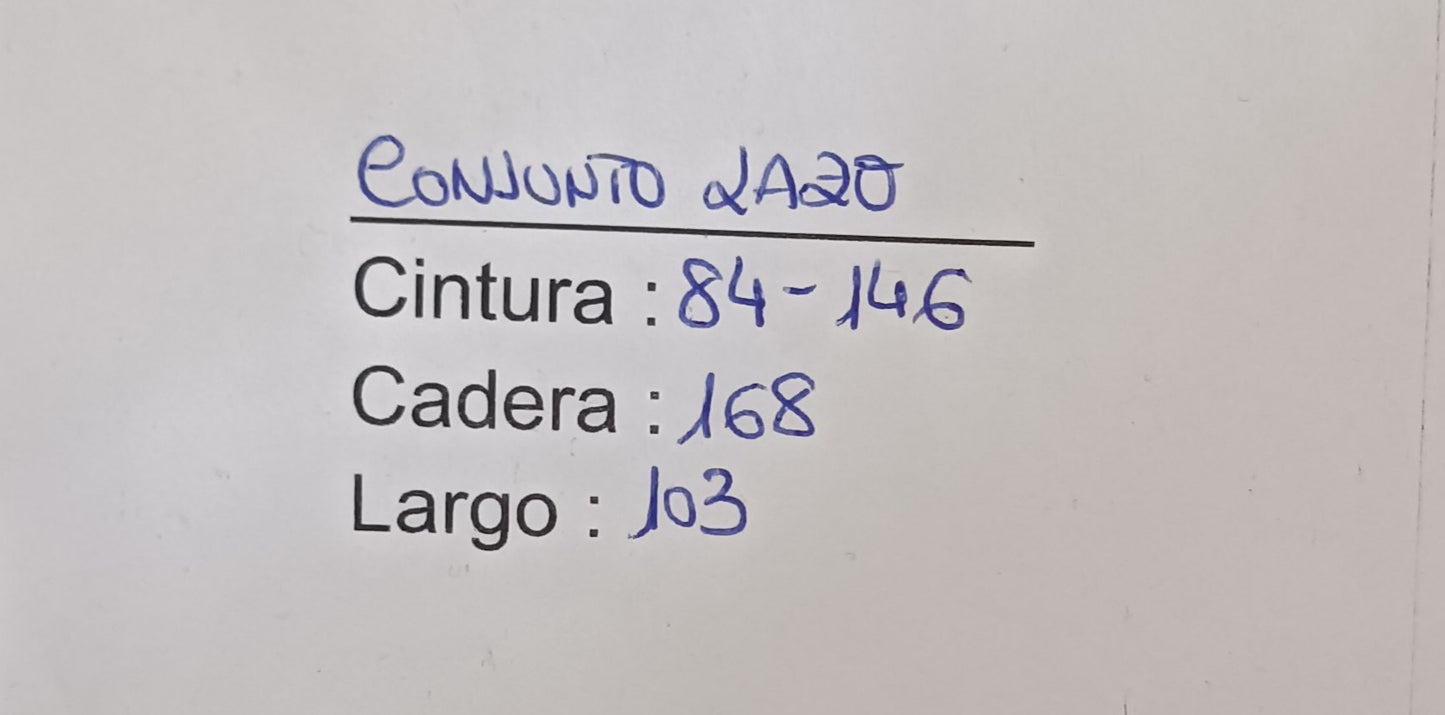 CONJUNTO LAZO
Cintura : 84-146
Cadera : 168
Largo : 103